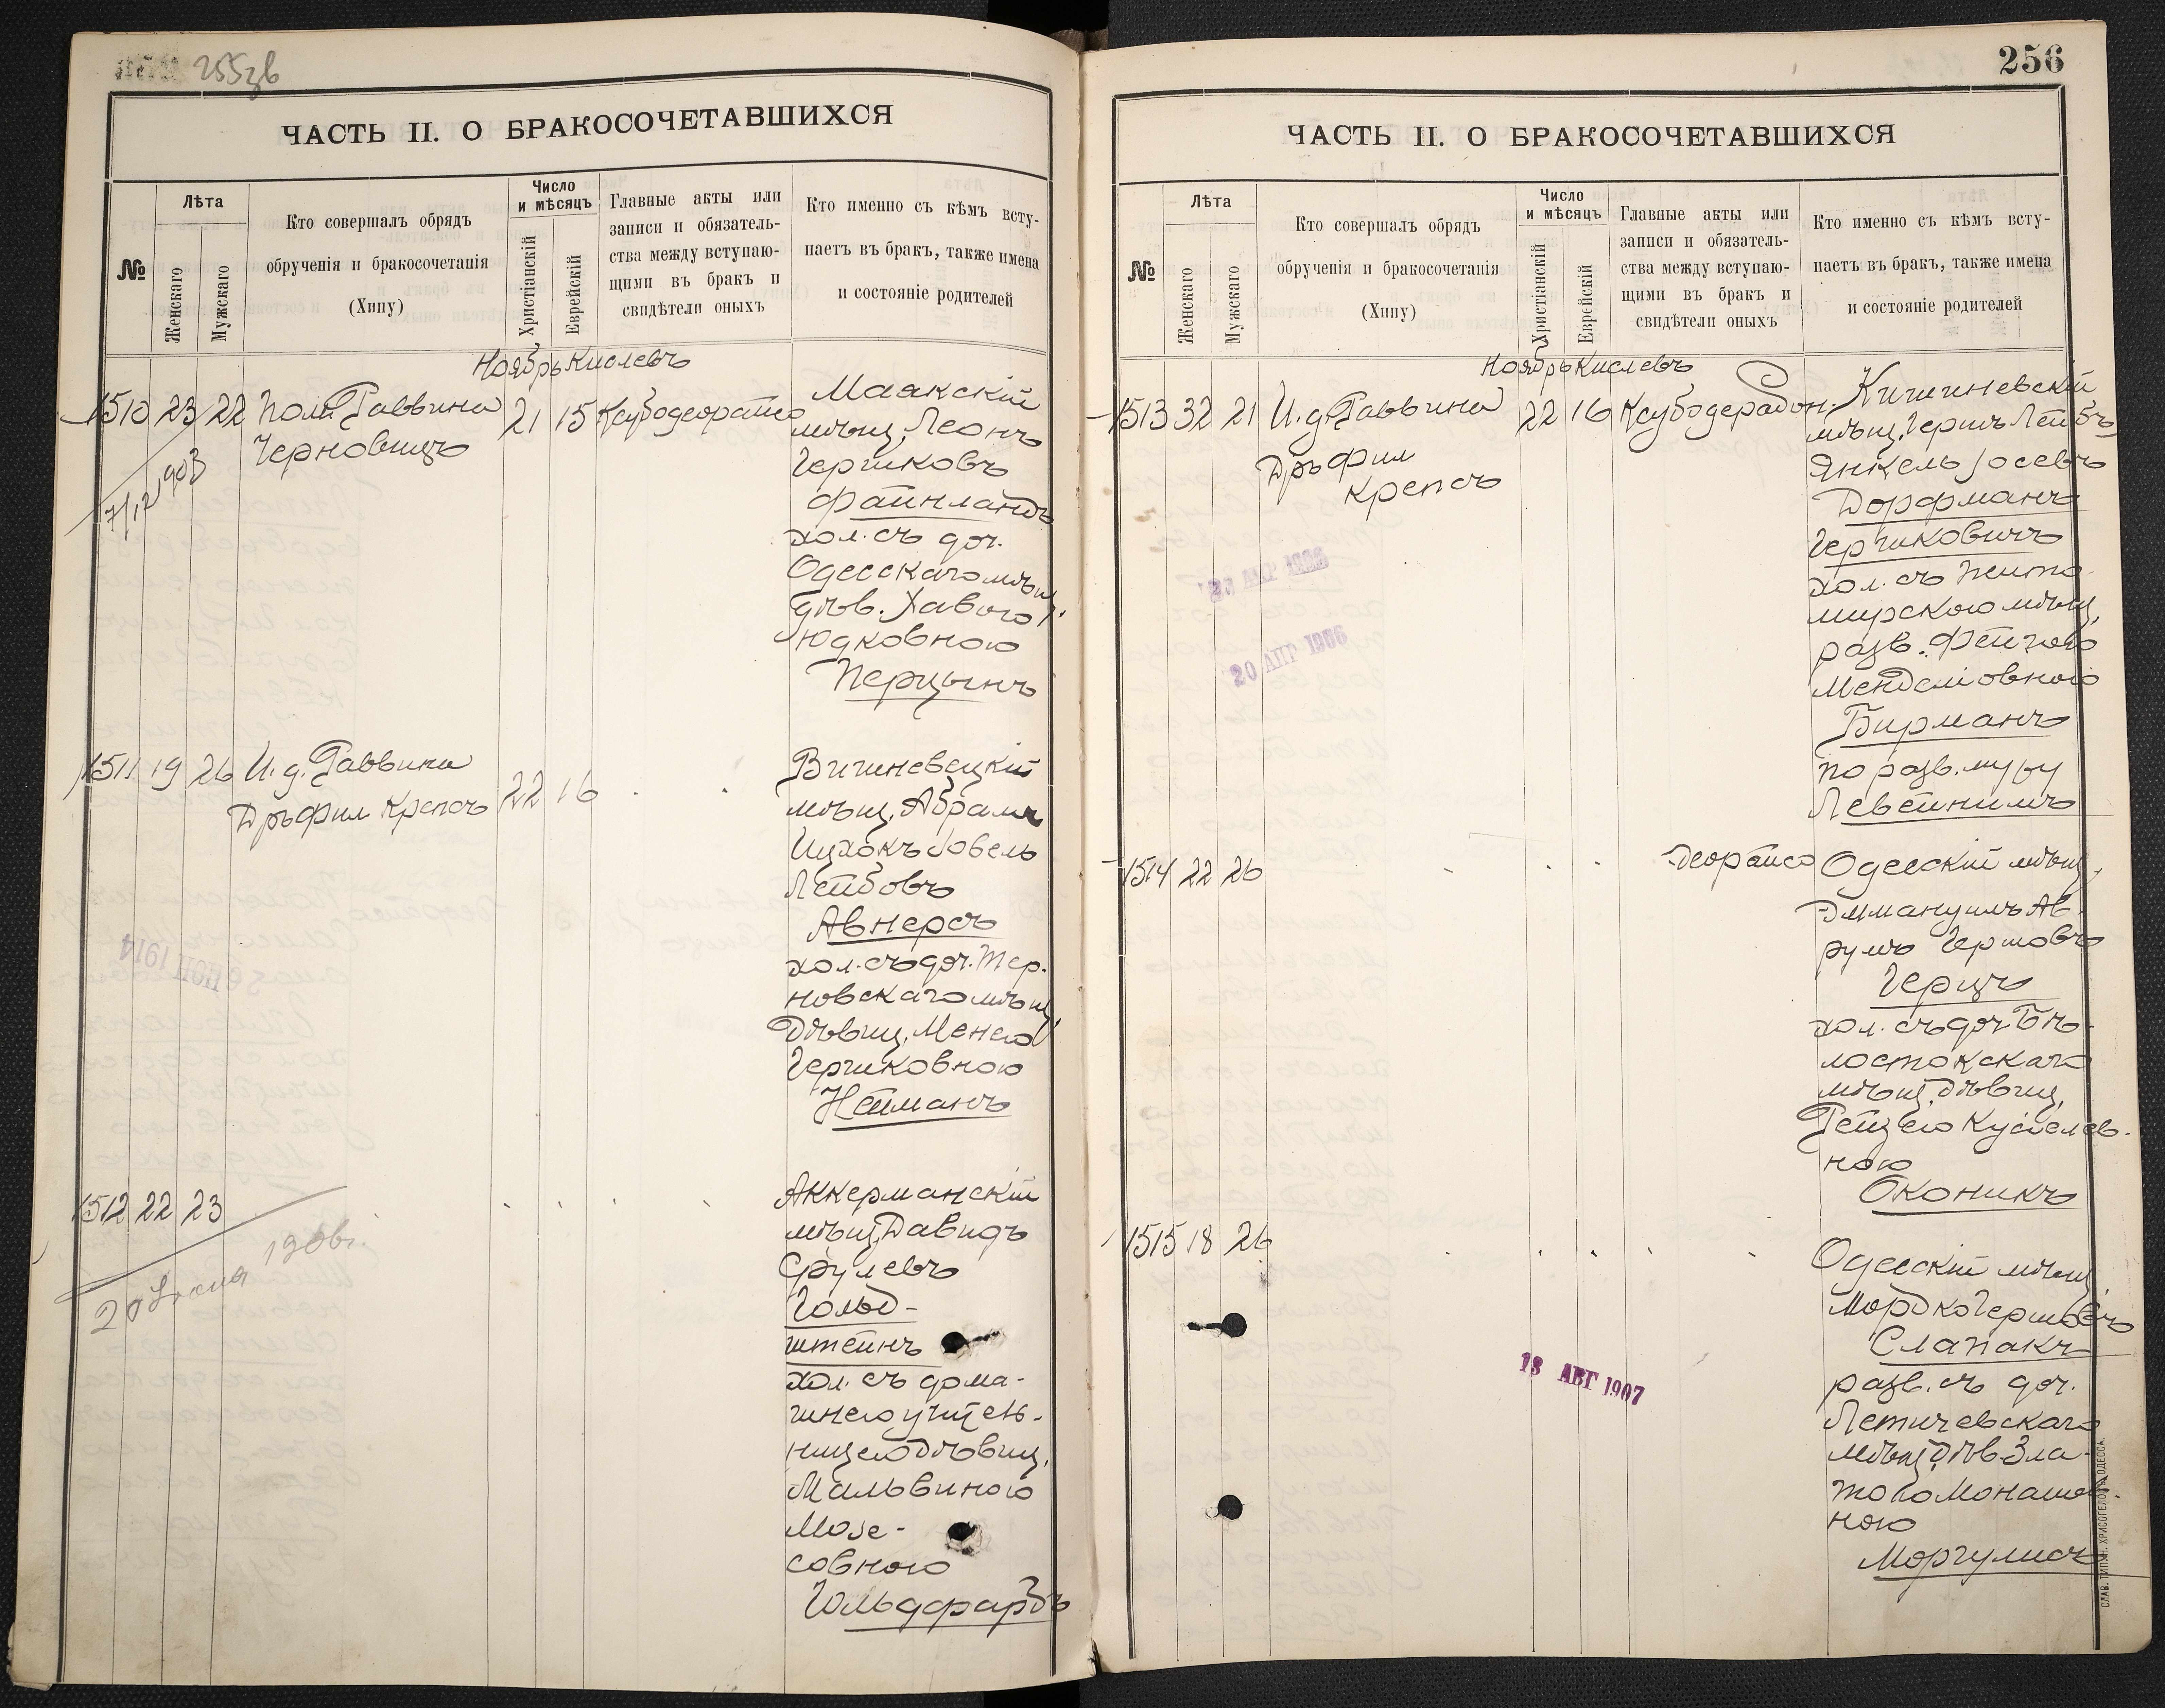 255зв
ЧАСТЬ II. О БРАКОСОЧЕТАВШИХСЯ
№
Лѣта
Женскаго
Мужскаго
Кто совершалъ обрядъ
обрученія и бракосочетанія
(Хипу)
Число
и мѣсяцъ
Христіанскій
Еврейскій
Главные акты или
записи и обязатель-
ства между вступаю-
щими въ бракъ и
свидѣтели оныхъ
Кто именно съ кѣмъ всту-
паетъ въ бракъ, также имена
и состояніе родителей
Ноябрь Кислевъ
1510 23 22 Пом. Раввина
Черновицъ
21 15
7/12 903
Маякскій
мѣщ. Леонъ
Гершковъ
Файнландъ
хол. съ доч.
Одесскаго мѣщ.
дѣв. Хавою
Юдковною
Перцынъ
1511 19 26 И. д. Раввина
Дръ фил Крепсъ 22 16
Вишневецкій
мѣщ. Абрамъ
Ицхокъ Іовель
Лейбовъ
Авнерсъ
хол. съ доч. Тер-
новскаго мѣщ.
Дѣвиц. Менею
Гершковною
Нейманъ
1512 22 23
Аккерманскій
мѣщ. Давидъ
Срулевъ
Гольд-
штейнъ
хол. съ дома-
шнею учитель-
ницею дѣвиц.
Мальвиною
Мозе-
совною
Гольдфарбъ
256
ЧАСТЬ II. О БРАКОСОЧЕТАВШИХСЯ
№
Лѣта
Женскаго
Мужскаго
Кто совершалъ обрядъ
обрученія и бракосочетанія
(Хипу)
Число
и мѣсяцъ
Христіанскій
Еврейскій
Главные акты или
записи и обязатель-
ства между вступаю-
щими въ бракъ и
свидѣтели оныхъ
Кто именно съ кѣмъ всту-
паетъ въ бракъ, также имена
и состояніе родителей
Ноябрь Кислевъ
1513 32 21 И. д. Раввина
Дръ фил
Крепсъ
22 16 Ксубодерабон.
20 АПР 1906
Кишиневскій
мѣщ. Гершъ Лейбъ
Янкель Іосевъ
Дорфманъ
Гершковичъ
хол. съ Жито
мирскою мѣщ.
разв. Фейгою
Менделіовною
Бирманъ
по разв. мужу
Левейнимъ
1514 22 26
Деорайсо
Одесскій мѣщ.
Эммануилъ Ав-
румъ Гершовъ
Герцъ
хол. съ доч. Бѣ-
лостокскаго
мѣщ. Дѣвиц.
Рейзею Кусіелев-
ною
Оконикъ
1515 18 26
13 АВГ 1907
Одесскій мѣщ.
Мордко Гершовъ
Слапакъ
разв. съ доч.
Летичевскаго
мѣщ. Дѣв. Зла-
тою Монашев-
ною
Моргулисъ
СЛАВ. ТИП. Н. ХРИСОГЕЛОСЪ, ОДЕССА.